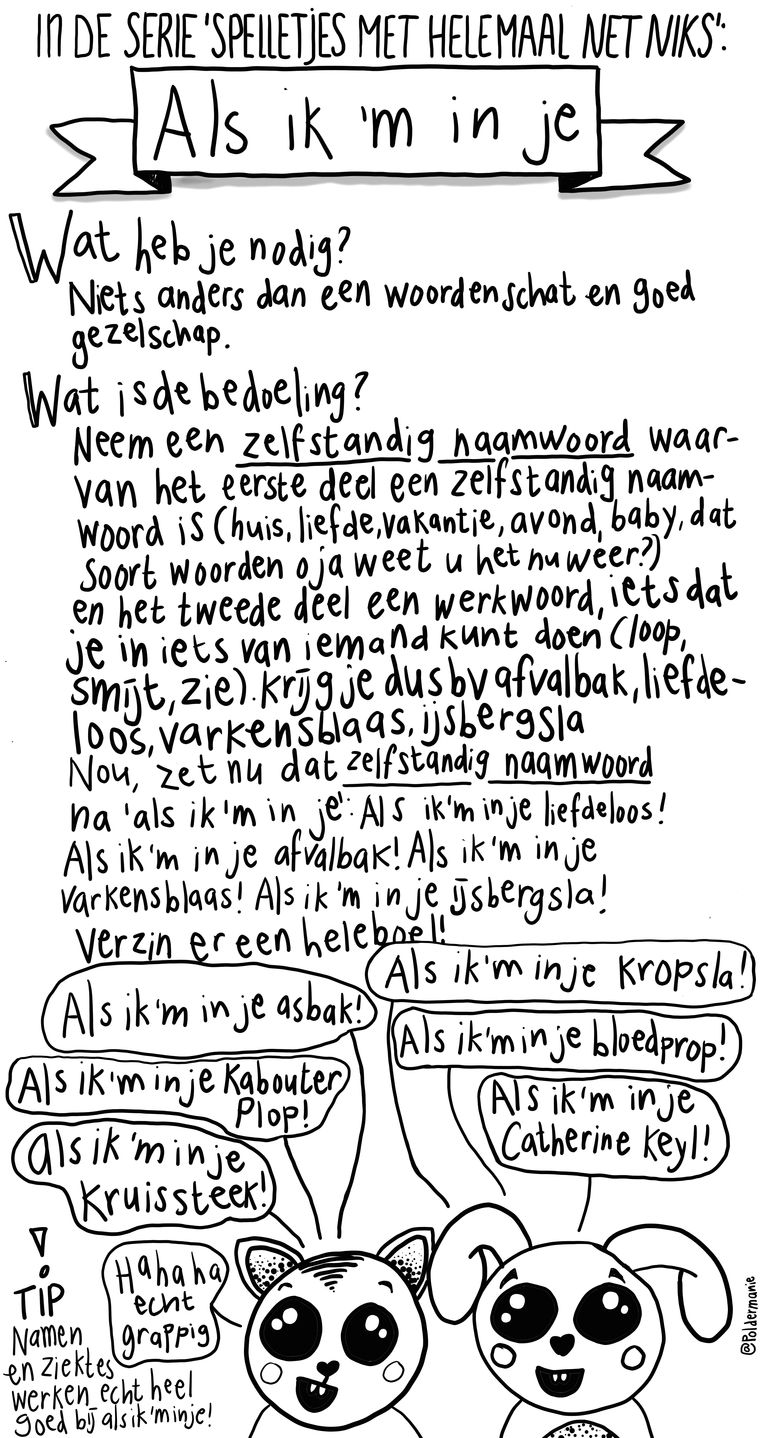 IN DE SERIE 'SPELLETJES MET HELEMAAL NET NIKS':
Als ik 'm in je
Wat heb je nodig?
Niets anders dan een woordenschat en goed
gezelschap.
Wat is de bedoeling?
Neem een zelfstandig naamwoord waar-
van het eerste deel een zelfstandig naam-
woord is (huis, liefde, vakantie, avond, baby, dat
soort woorden o ja weet u het nu weer?)
en het tweede deel een werkwoord, iets dat
je in iets van iemand kunt doen (loop,
smijt, zie). Krijg je dus bv afvalbak, liefde-
loos, varkensblaas, ijsbergsla
Nou, zet nu dat zelfstandig naamwoord
na 'als ik 'm in je': Als ik 'm in je liefdeloos!
Als ik 'm in je afvalbak! Als ik 'm in je
varkensblaas! Als ik 'm in je ijsbergsla!
Verzin er een heleboel!
Als ik 'm in je kropsla!
Als ik 'm in je asbak!
Als ik 'm in je bloedprop!
Als ik 'm in je Kabouter
Plop!
Als ik 'm in je
Catherine Keyl!
als ik 'm in je
kruissteek!
! TIP
Namen
en ziektes
werken echt heel
goed bij als ik 'm in je!
Hahaha
echt
grappig
@Poldermanie